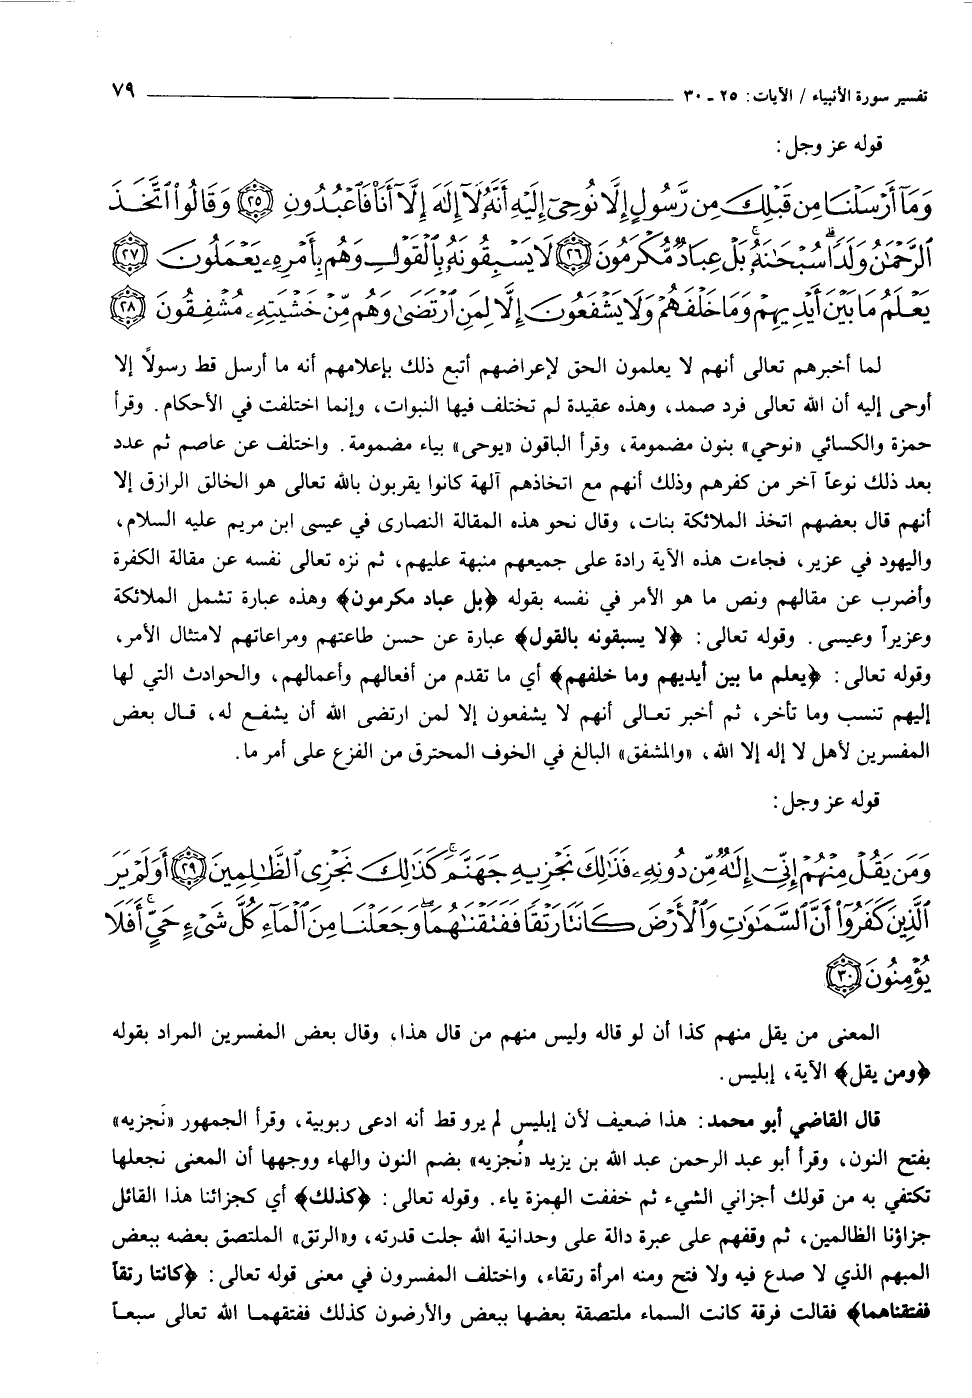 تفسير سورة الأنبياء / الآيات: ٢٥ - ٣٠ ٧٩
قوله عز وجل:
وَمَآ أَرْسَلْنَا مِن قَبْلِكَ مِن رَّسُولٍ إِلَّا نُوحِىٓ إِلَيْهِ أَنَّهُۥ لَآ إِلَٰهَ إِلَّآ أَنَا۠ فَٱعْبُدُونِ ٢٥ وَقَالُوا۟ ٱتَّخَذَ
ٱلرَّحْمَٰنُ وَلَدًا ۗ سُبْحَٰنَهُۥ ۚ بَلْ عِبَادٌ مُّكْرَمُونَ ٢٦ لَا يَسْبِقُونَهُۥ بِٱلْقَوْلِ وَهُم بِأَمْرِهِۦ يَعْمَلُونَ ٢٧
يَعْلَمُ مَا بَيْنَ أَيْدِيهِمْ وَمَا خَلْفَهُمْ وَلَا يَشْفَعُونَ إِلَّا لِمَنِ ٱرْتَضَىٰ وَهُم مِّنْ خَشْيَتِهِۦ مُشْفِقُونَ ٢٨
لما أخبرهم تعالى أنهم لا يعلمون الحق لإعراضهم أتبع ذلك بإعلامهم أنه ما أرسل قط رسولاً إلا
أوحى إليه أن الله تعالى فرد صمد، وهذه عقيدة لم تختلف فيها النبوات، وإنما اختلفت في الأحكام. وقرأ
حمزة والكسائي «نوحي» بنون مضمومة، وقرأ الباقون «يوحى» بياء مضمومة. واختلف عن عاصم ثم عدد
بعد ذلك نوعاً آخر من كفرهم وذلك أنهم مع اتخاذهم آلهة كانوا يقربون بالله تعالى هو الخالق الرازق إلا
أنهم قال بعضهم اتخذ الملائكة بنات، وقال نحو هذه المقالة النصارى في عيسى ابن مريم عليه السلام،
واليهود في عزير، فجاءت هذه الآية رادة على جميعهم منبهة عليهم، ثم نزه تعالى نفسه عن مقالة الكفرة
وأضرب عن مقالهم ونص ما هو الأمر في نفسه بقوله ﴿بل عباد مكرمون﴾ وهذه عبارة تشمل الملائكة
وعزيراً وعيسى. وقوله تعالى: ﴿لا يسبقونه بالقول﴾ عبارة عن حسن طاعتهم ومراعاتهم لامتثال الأمر،
وقوله تعالى: ﴿يعلم ما بين أيديهم وما خلفهم﴾ أي ما تقدم من أفعالهم وأعمالهم، والحوادث التي لها
إليهم تنسب وما تأخر، ثم أخبر تعالى أنهم لا يشفعون إلا لمن ارتضى الله أن يشفع له، قال بعض
المفسرين لأهل لا إله إلا الله، «والمشفق» البالغ في الخوف المحترق من الفزع على أمر ما.
قوله عز وجل:
وَمَن يَقُلْ مِنْهُمْ إِنِّىٓ إِلَٰهٌ مِّن دُونِهِۦ فَذَٰلِكَ نَجْزِيهِ جَهَنَّمَ ۚ كَذَٰلِكَ نَجْزِى ٱلظَّٰلِمِينَ ٢٩ أَوَلَمْ يَرَ
ٱلَّذِينَ كَفَرُوٓا۟ أَنَّ ٱلسَّمَٰوَٰتِ وَٱلْأَرْضَ كَانَتَا رَتْقًا فَفَتَقْنَٰهُمَا ۖ وَجَعَلْنَا مِنَ ٱلْمَآءِ كُلَّ شَىْءٍ حَىٍّ ۖ أَفَلَا
يُؤْمِنُونَ ٣٠
المعنى من يقل منهم كذا أن لو قاله وليس منهم من قال هذا، وقال بعض المفسرين المراد بقوله
﴿ومن يقل﴾ الآية، إبليس.
قال القاضي أبو محمد: هذا ضعيف لأن إبليس لم يرو قط أنه ادعى ربوبية، وقرأ الجمهور «نَجزيه»
بفتح النون، وقرأ أبو عبد الرحمن عبد الله بن يزيد «نُجزيه» بضم النون والهاء ووجهها أن المعنى نجعلها
تكتفي به من قولك أجزاني الشيء ثم خففت الهمزة ياء. وقوله تعالى: ﴿كذلك﴾ أي كجزائنا هذا القائل
جزاؤنا الظالمين، ثم وقفهم على عبرة دالة على وحدانية الله جلت قدرته، و«الرتق» الملتصق بعضه ببعض
المبهم الذي لا صدع فيه ولا فتح ومنه امرأة رتقاء، واختلف المفسرون في معنى قوله تعالى: ﴿كانتا رتقاً
ففتقناهما﴾ فقالت فرقة كانت السماء ملتصقة بعضها ببعض والأرضون كذلك ففتقهما الله تعالى سبعاً